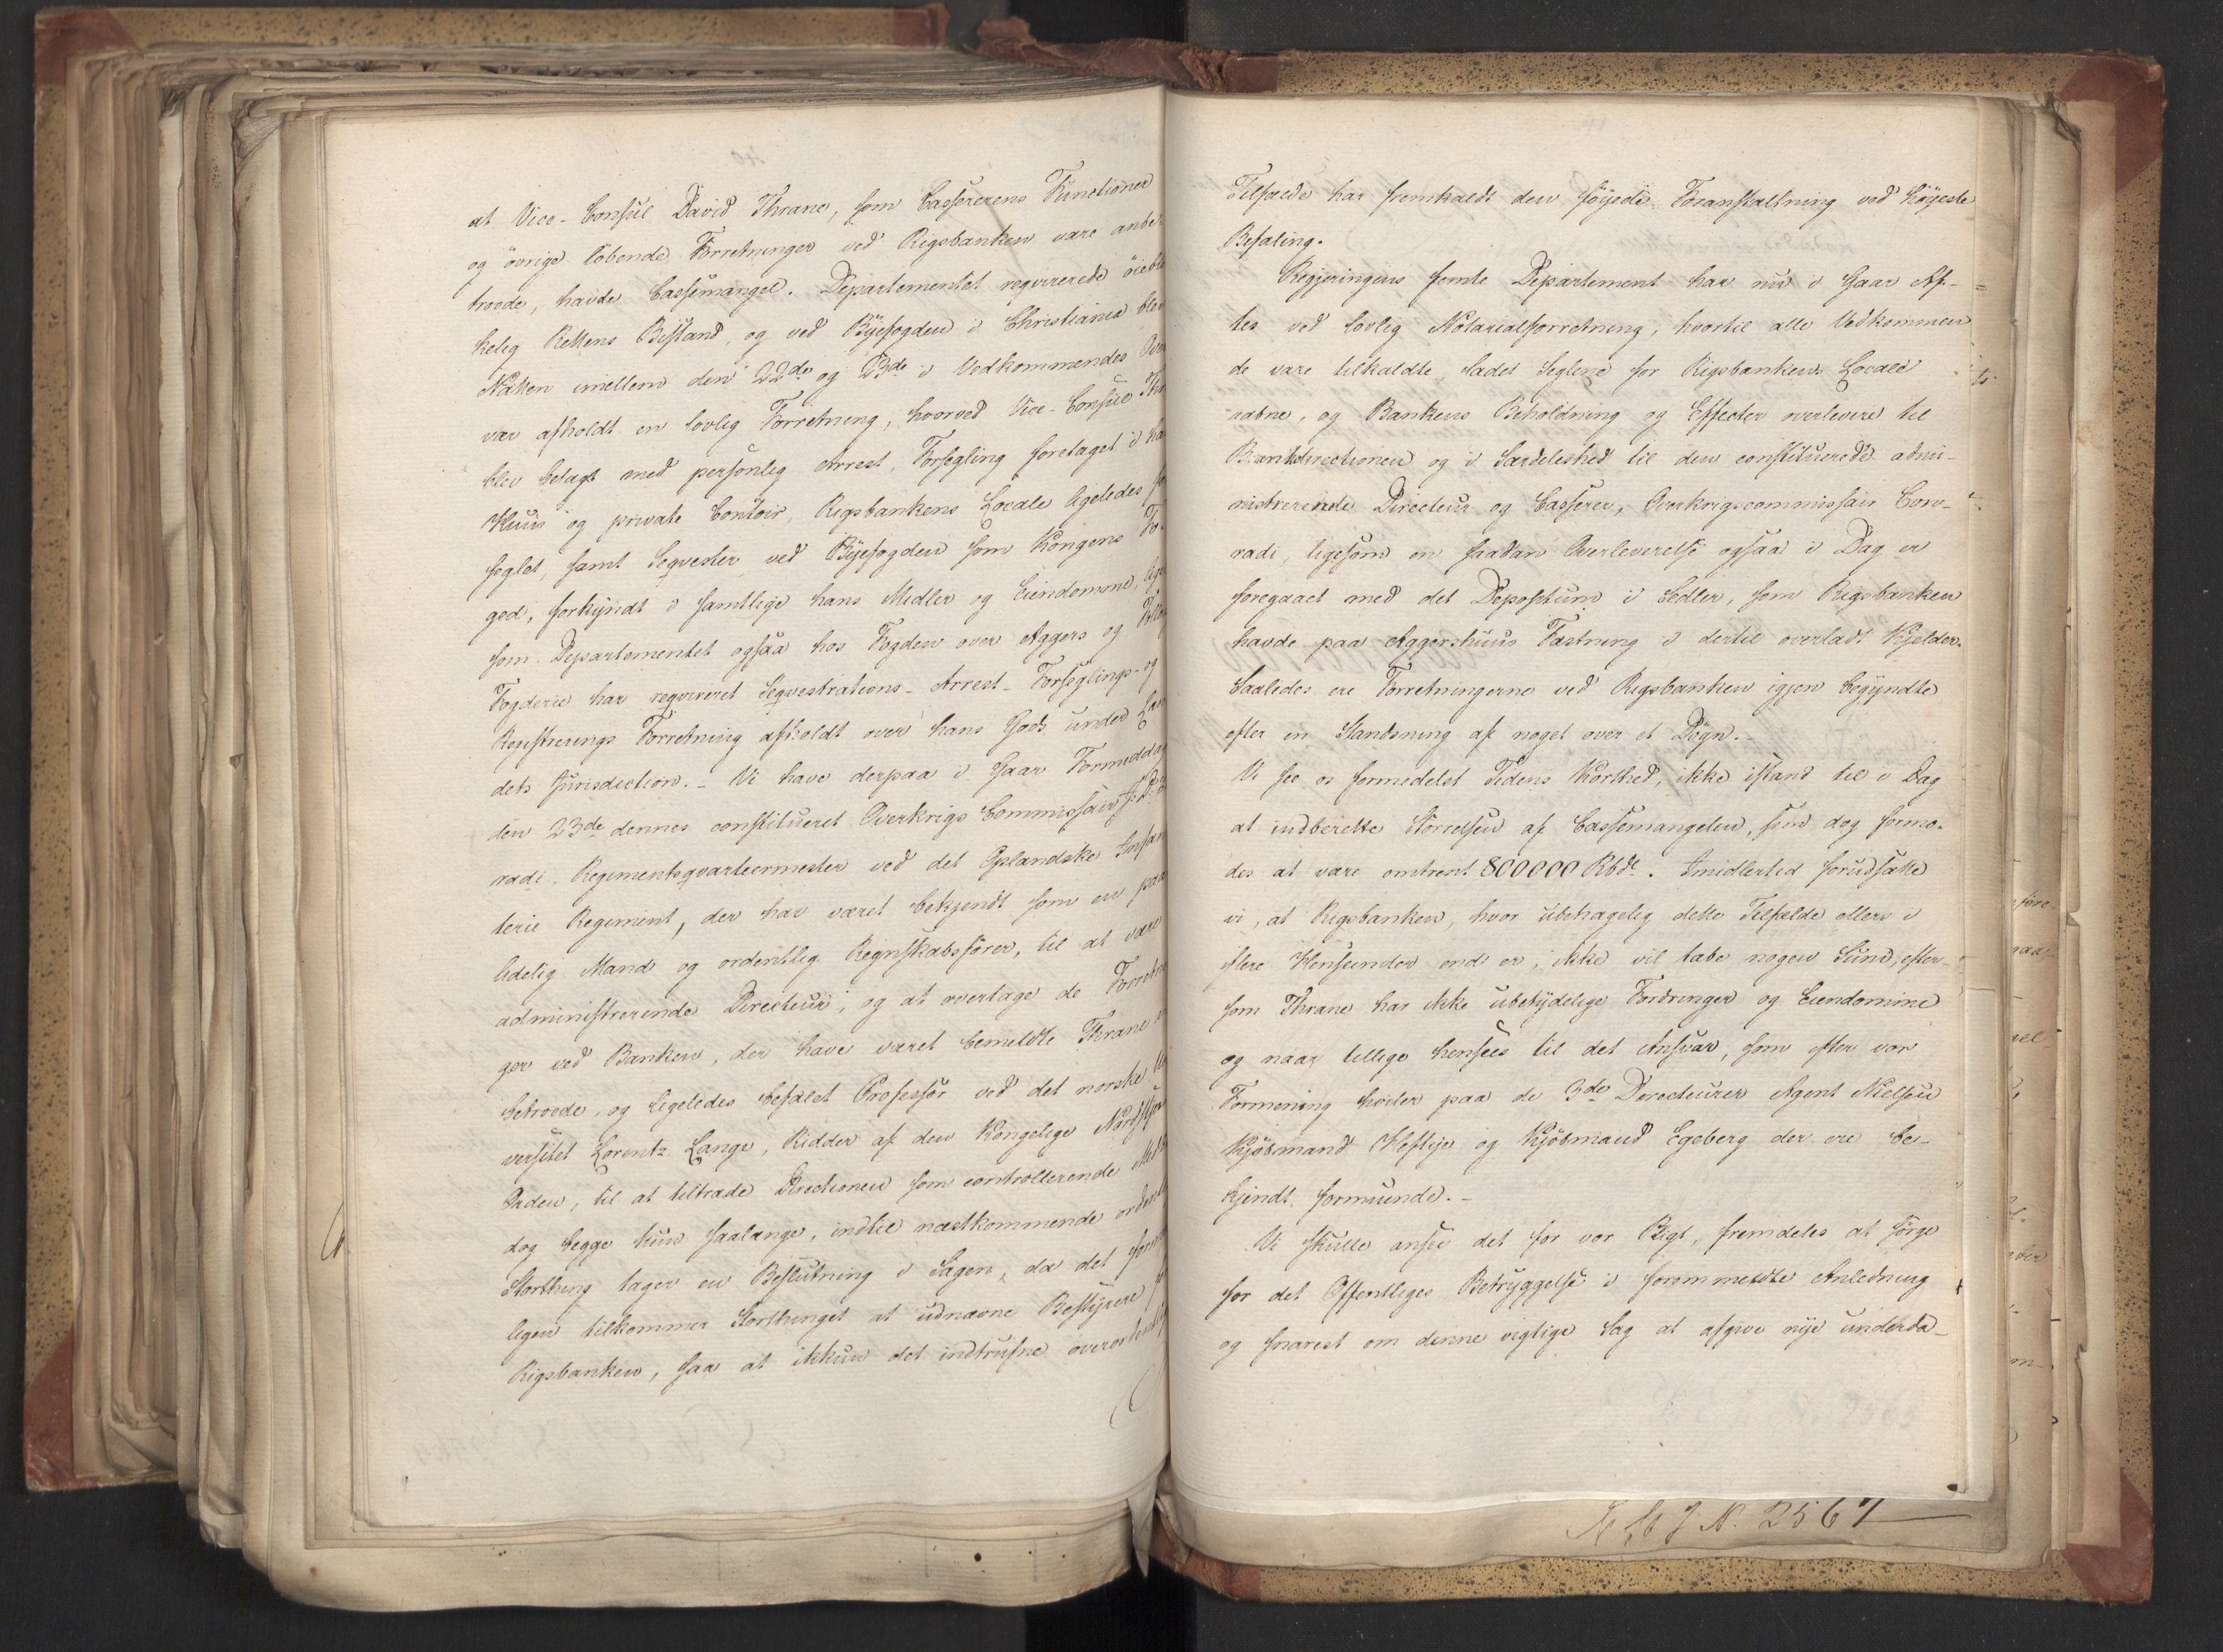 at Vice-Consul David Thrane, som Cassererens Functioner
og övrige löbende Forretninger ved Rigsbanken vare anbe-
troede, havde Cassemangel. Departementet reqvirerede öieb
kelig Rettens Bistand, og ved Byefogden i Christiania blev
Natten imellem den 22de og 23de i Vedkommendes
var afholdt en lovlig Forretning, hvorved Vice-Consul Th
blev belagt med personlig Arrest, Forsegling foretaget i ha
Huus og private Contoir, Rigsbankens Locale ligeledes
seglet, samt Seqvester ved Byefogden som Kongens Fo
ged, forkyndt i samtlige hans Midler og Eiendomme, lige
som Departementet ogsaa hos Fogden over Aggers og
Fogderie har reqvireret Seqvestrations- Arrest- Forseglings- og
Registrerings Forretning afholdt over hans Gods under Lan
dets Jurisdiction. - Vi have derpaa i Gaar Formiddag
den 23de dennes constitueret Overkrigs Commissair
radi, Regimentsqvarteermester ved det Oplandske Infan
terie Regiment, der har været bekjendt som en paa
lidelig Mand og ordentlig Regnskabsförer, til at være
administrerende Directeur, og at overtage de Forretni
ger ved Banken, der have været bemeldte Thrane
betroede, og ligeledes befalet Professor ved det norske
versitet Lorentz Lange, Ridder af den Kongelige Nordstjer
Orden, til at tiltræde Directionen som controllerende
dog begge kun saalænge, indtil næstkommende ordent
Storthing tager en Beslutning i Sagen, da det
ligen tilkommer Storthinget at udnævne Bestyrere
Rigsbanken, saa at ikkun det indtrufne overordentlig
Tilfælde har fremkaldt den föyede Foranstaltning ved Höyeste
Befaling.
Regjeringens femte Departement har nu i Gaar Af-
tes ved lovlig Notarialforretning, hvortil alle Vedkommen
de vare tilkaldte, ladet Seglene for Rigsbankens Locale
aabne, og Bankens Beholdning og Effecter overlevere til
Bankdirectionen og i Særdeleshed til den constituerede admi-
nistrerende Directeur og Casserer, Overkrigscommissair Con-
radi, ligesom en saadan Overleverelse ogsaa i Dag er
foregaaet med det Depositum i Sedler, som Rigsbanken
havde paa Aggershuus Fæstning i dertil overladt Kjelder.
Saaledes ere Forretningerne ved Rigsbanken igjen begyndte
efter en Standsning af noget over et Dögn.
Vi see os formedelst Tidens Korthed, ikke istand til i Dag
at indberette Störrelsen af Cassemangelen, som dog formo-
des at være omtrent 800000 Rbd. Imidlertid forudsætte
vi, at Rigsbanken, hvor ubehagelig dette Tilfælde ellers i
flere Henseender end er, ikke vil tabe nogen Sum, efter-
som Thrane har ikke ubetydelige Fordringer og Eiendomme
og naar tillige hensees til det Ansvar, som efter vor
Formening hviler paa de 3de Directeurer Agent Nielsen
Kjöbmand Heftye og Kjöbmand Egeberg der ere be-
kjendt formuende. -
Vi skulle ansee det for vor Pligt, fremdeles at sörge
for det Offentliges Betryggelse i forommeldte Anledning
og snarest om denne vigtige Sag at afgive nye underda-
J. N. 2567